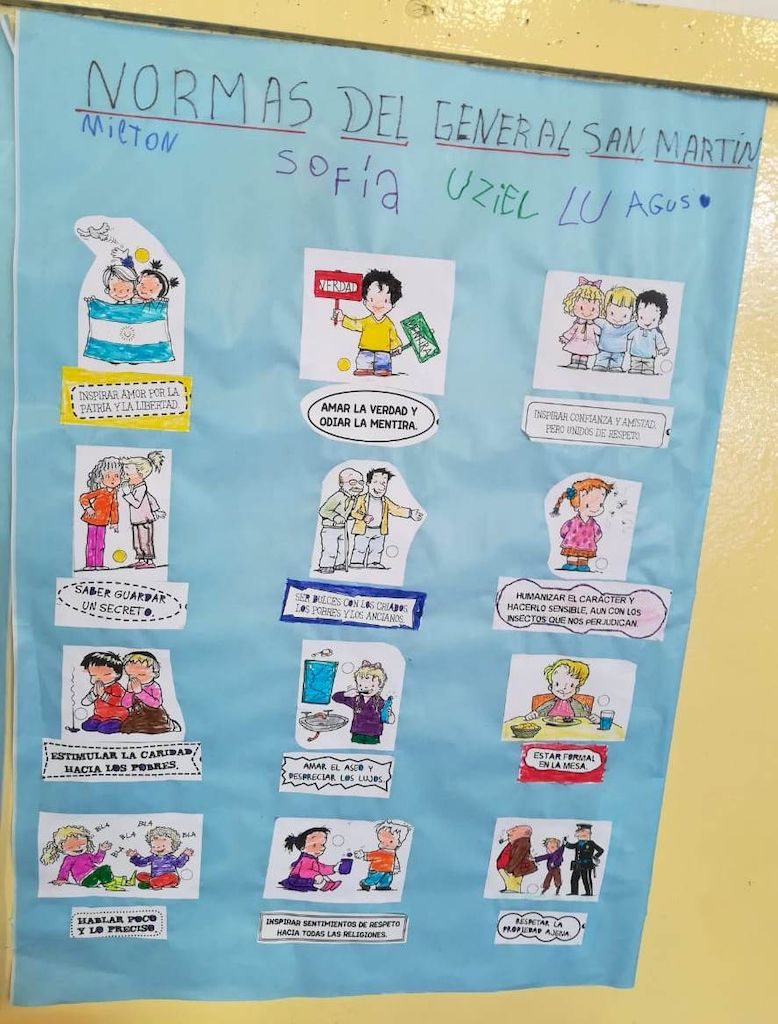 NORMAS DEL GENERAL SAN MARTÍN
MILTON SOFÍA UZIEL LU AGUS
VERDAD
MENTIRA
INSPIRAR AMOR POR LA
PATRIA Y LA LIBERTAD.
AMAR LA VERDAD Y
ODIAR LA MENTIRA.
INSPIRAR CONFIANZA Y AMISTAD,
PERO UNIDOS DE RESPETO.
SABER GUARDAR
UN SECRETO.
SER DULCES CON LOS CRIADOS,
LOS POBRES Y LOS ANCIANOS.
HUMANIZAR EL CARÁCTER Y
HACERLO SENSIBLE, AUN CON LOS
INSECTOS QUE NOS PERJUDICAN.
ESTIMULAR LA CARIDAD
HACIA LOS POBRES.
AMAR EL ASEO Y
DESPRECIAR LOS LUJOS.
ESTAR FORMAL
EN LA MESA.
BLA BLA BLA BLA BLA
HABLAR POCO
Y LO PRECISO.
INSPIRAR SENTIMIENTOS DE RESPETO
HACIA TODAS LAS RELIGIONES.
RESPETAR LA
PROPIEDAD AJENA.